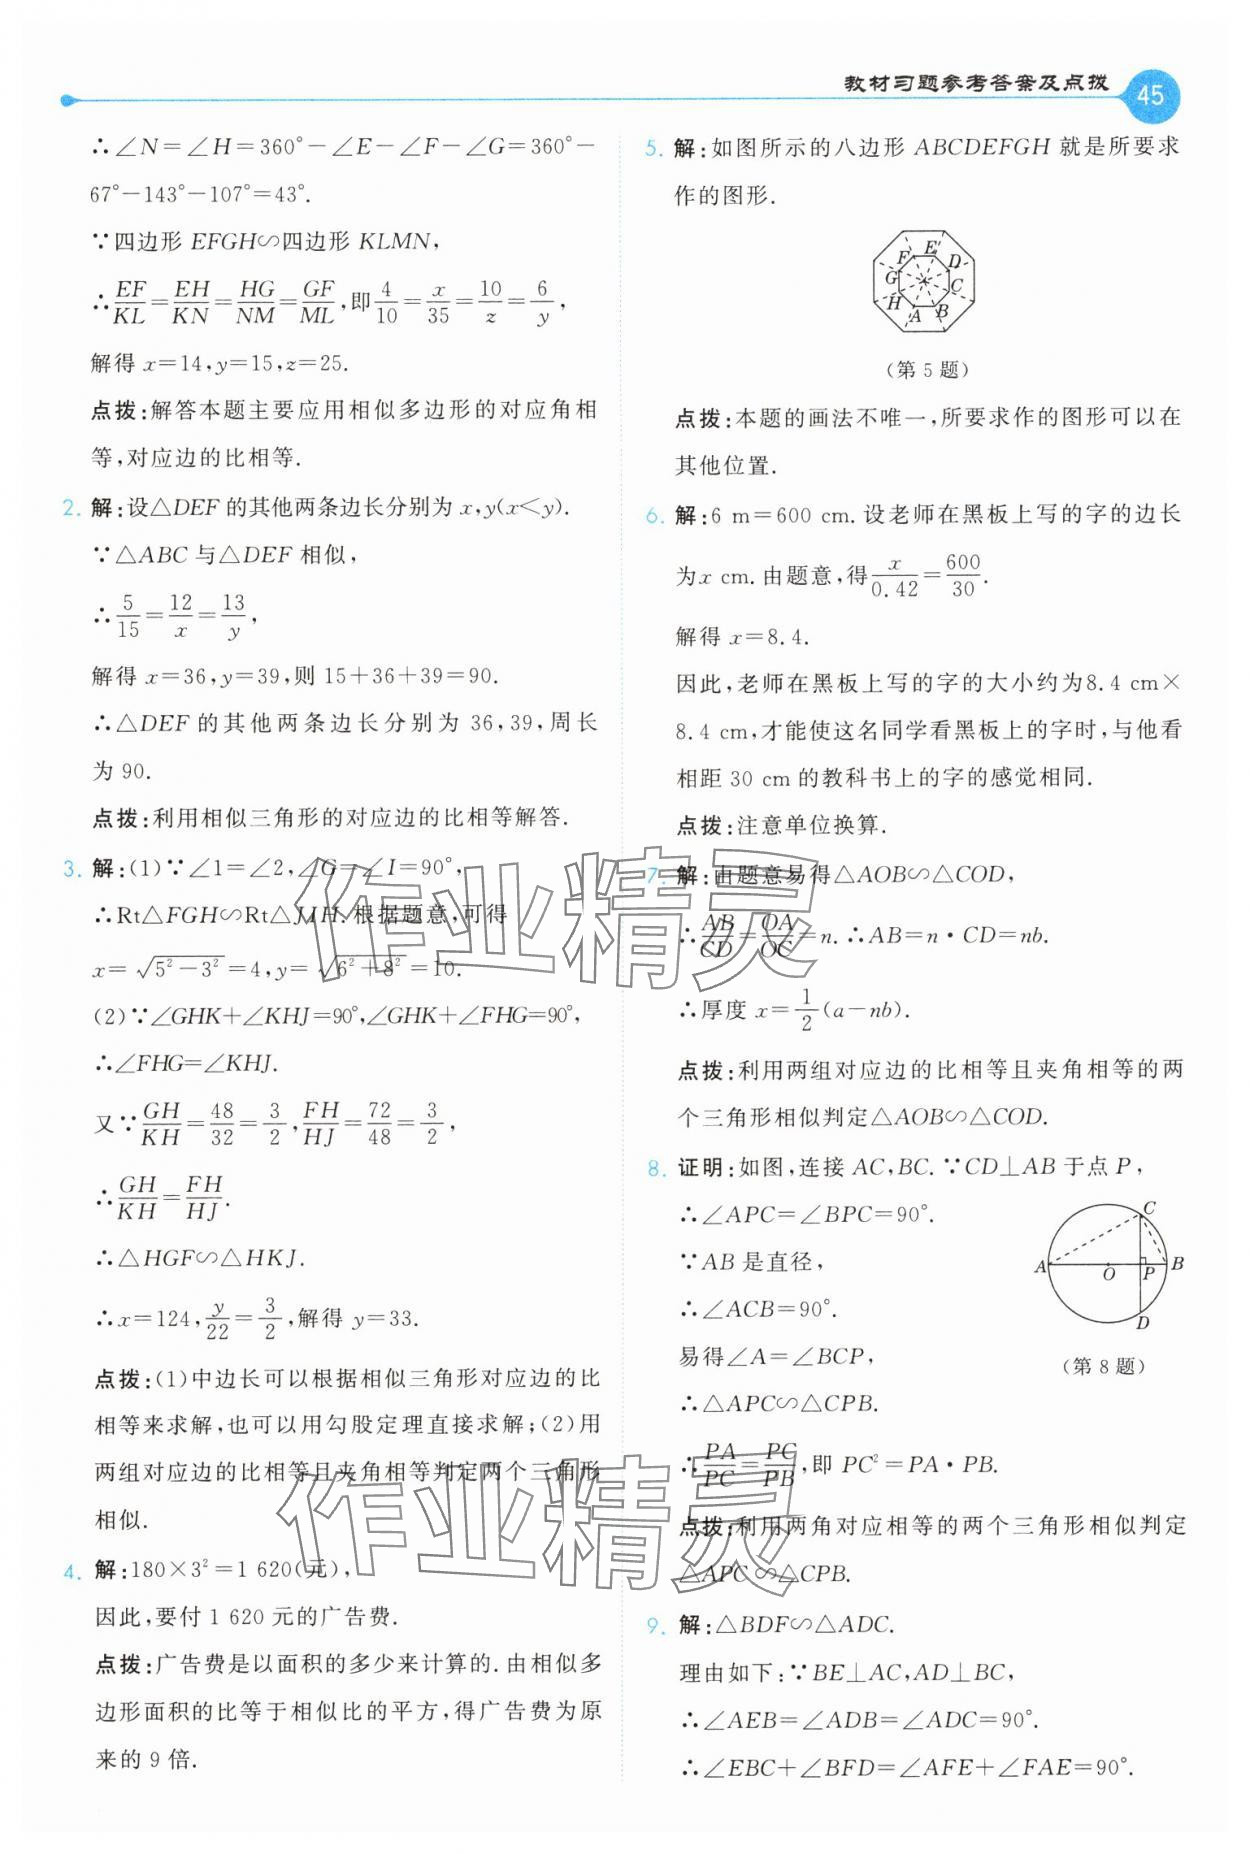 教材习题参考答案及点拨
45
∴∠N=∠H=360°-∠E-∠F-∠G=360°-
67°-143°-107°=43°.
∵四边形 EFGH∽四边形 KLMN,
∴EF/KL=EH/KN=HG/NM=GF/ML,即4/10=x/35=10/z=6/y,
解得 x=14,y=15,z=25.
点拨:解答本题主要应用相似多边形的对应角相
等,对应边的比相等.
2. 解:设△DEF 的其他两条边长分别为 x,y(x<y).
∵△ABC 与△DEF 相似,
∴5/15=12/x=13/y,
解得 x=36,y=39,则 15+36+39=90.
∴△DEF 的其他两条边长分别为 36,39,周长
为 90.
点拨:利用相似三角形的对应边的比相等解答.
3. 解:(1)∵∠1=∠2,∠G=∠I=90°,
∴Rt△FGH∽Rt△JIH.根据题意,可得
x=√(5²-3²)=4,y=√(6²+8²)=10.
(2)∵∠GHK+∠KHJ=90°,∠GHK+∠FHG=90°,
∴∠FHG=∠KHJ.
又∵GH/KH=48/32=3/2,FH/HJ=72/48=3/2,
∴GH/KH=FH/HJ.
∴△HGF∽△HKJ.
∴x=124,y/22=3/2,解得 y=33.
点拨:(1)中边长可以根据相似三角形对应边的比
相等来求解,也可以用勾股定理直接求解;(2)用
两组对应边的比相等且夹角相等判定两个三角形
相似.
4. 解:180×3²=1 620(元),
因此,要付 1 620 元的广告费.
点拨:广告费是以面积的多少来计算的.由相似多
边形面积的比等于相似比的平方,得广告费为原
来的 9 倍.
5. 解:如图所示的八边形 ABCDEFGH 就是所要求
作的图形.
F E D
G C
H A B
(第 5 题)
点拨:本题的画法不唯一,所要求作的图形可以在
其他位置.
6. 解:6 m=600 cm.设老师在黑板上写的字的边长
为x cm.由题意,得x/0.42=600/30.
解得 x=8.4.
因此,老师在黑板上写的字的大小约为8.4 cm×
8.4 cm,才能使这名同学看黑板上的字时,与他看
相距 30 cm 的教科书上的字的感觉相同.
点拨:注意单位换算.
7. 解:由题意易得△AOB∽△COD,
∴AB/CD=OA/OC=n.∴AB=n·CD=nb.
∴厚度 x=1/2(a-nb).
点拨:利用两组对应边的比相等且夹角相等的两
个三角形相似判定△AOB∽△COD.
8. 证明:如图,连接 AC,BC.∵CD⊥AB 于点 P,
∴∠APC=∠BPC=90°.
∵AB 是直径,
∴∠ACB=90°.
易得∠A=∠BCP,
∴△APC∽△CPB.
∴PA/PC=PC/PB,即 PC²=PA·PB.
C
A O P B
D
(第 8 题)
点拨:利用两角对应相等的两个三角形相似判定
△APC∽△CPB.
9. 解:△BDF∽△ADC.
理由如下:∵BE⊥AC,AD⊥BC,
∴∠AEB=∠ADB=∠ADC=90°.
∴∠EBC+∠BFD=∠AFE+∠FAE=90°.
作业精灵
作业精灵